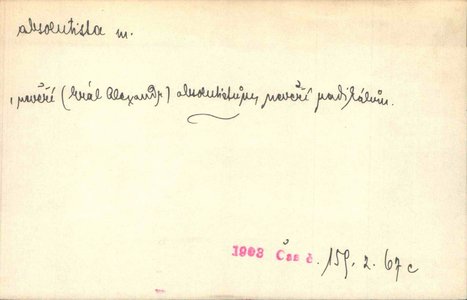 absolutista m.
nevěří (král Alexandr) absolutistům, nevěří radikálům.
1903 Čas č. 159. 2. 67 c